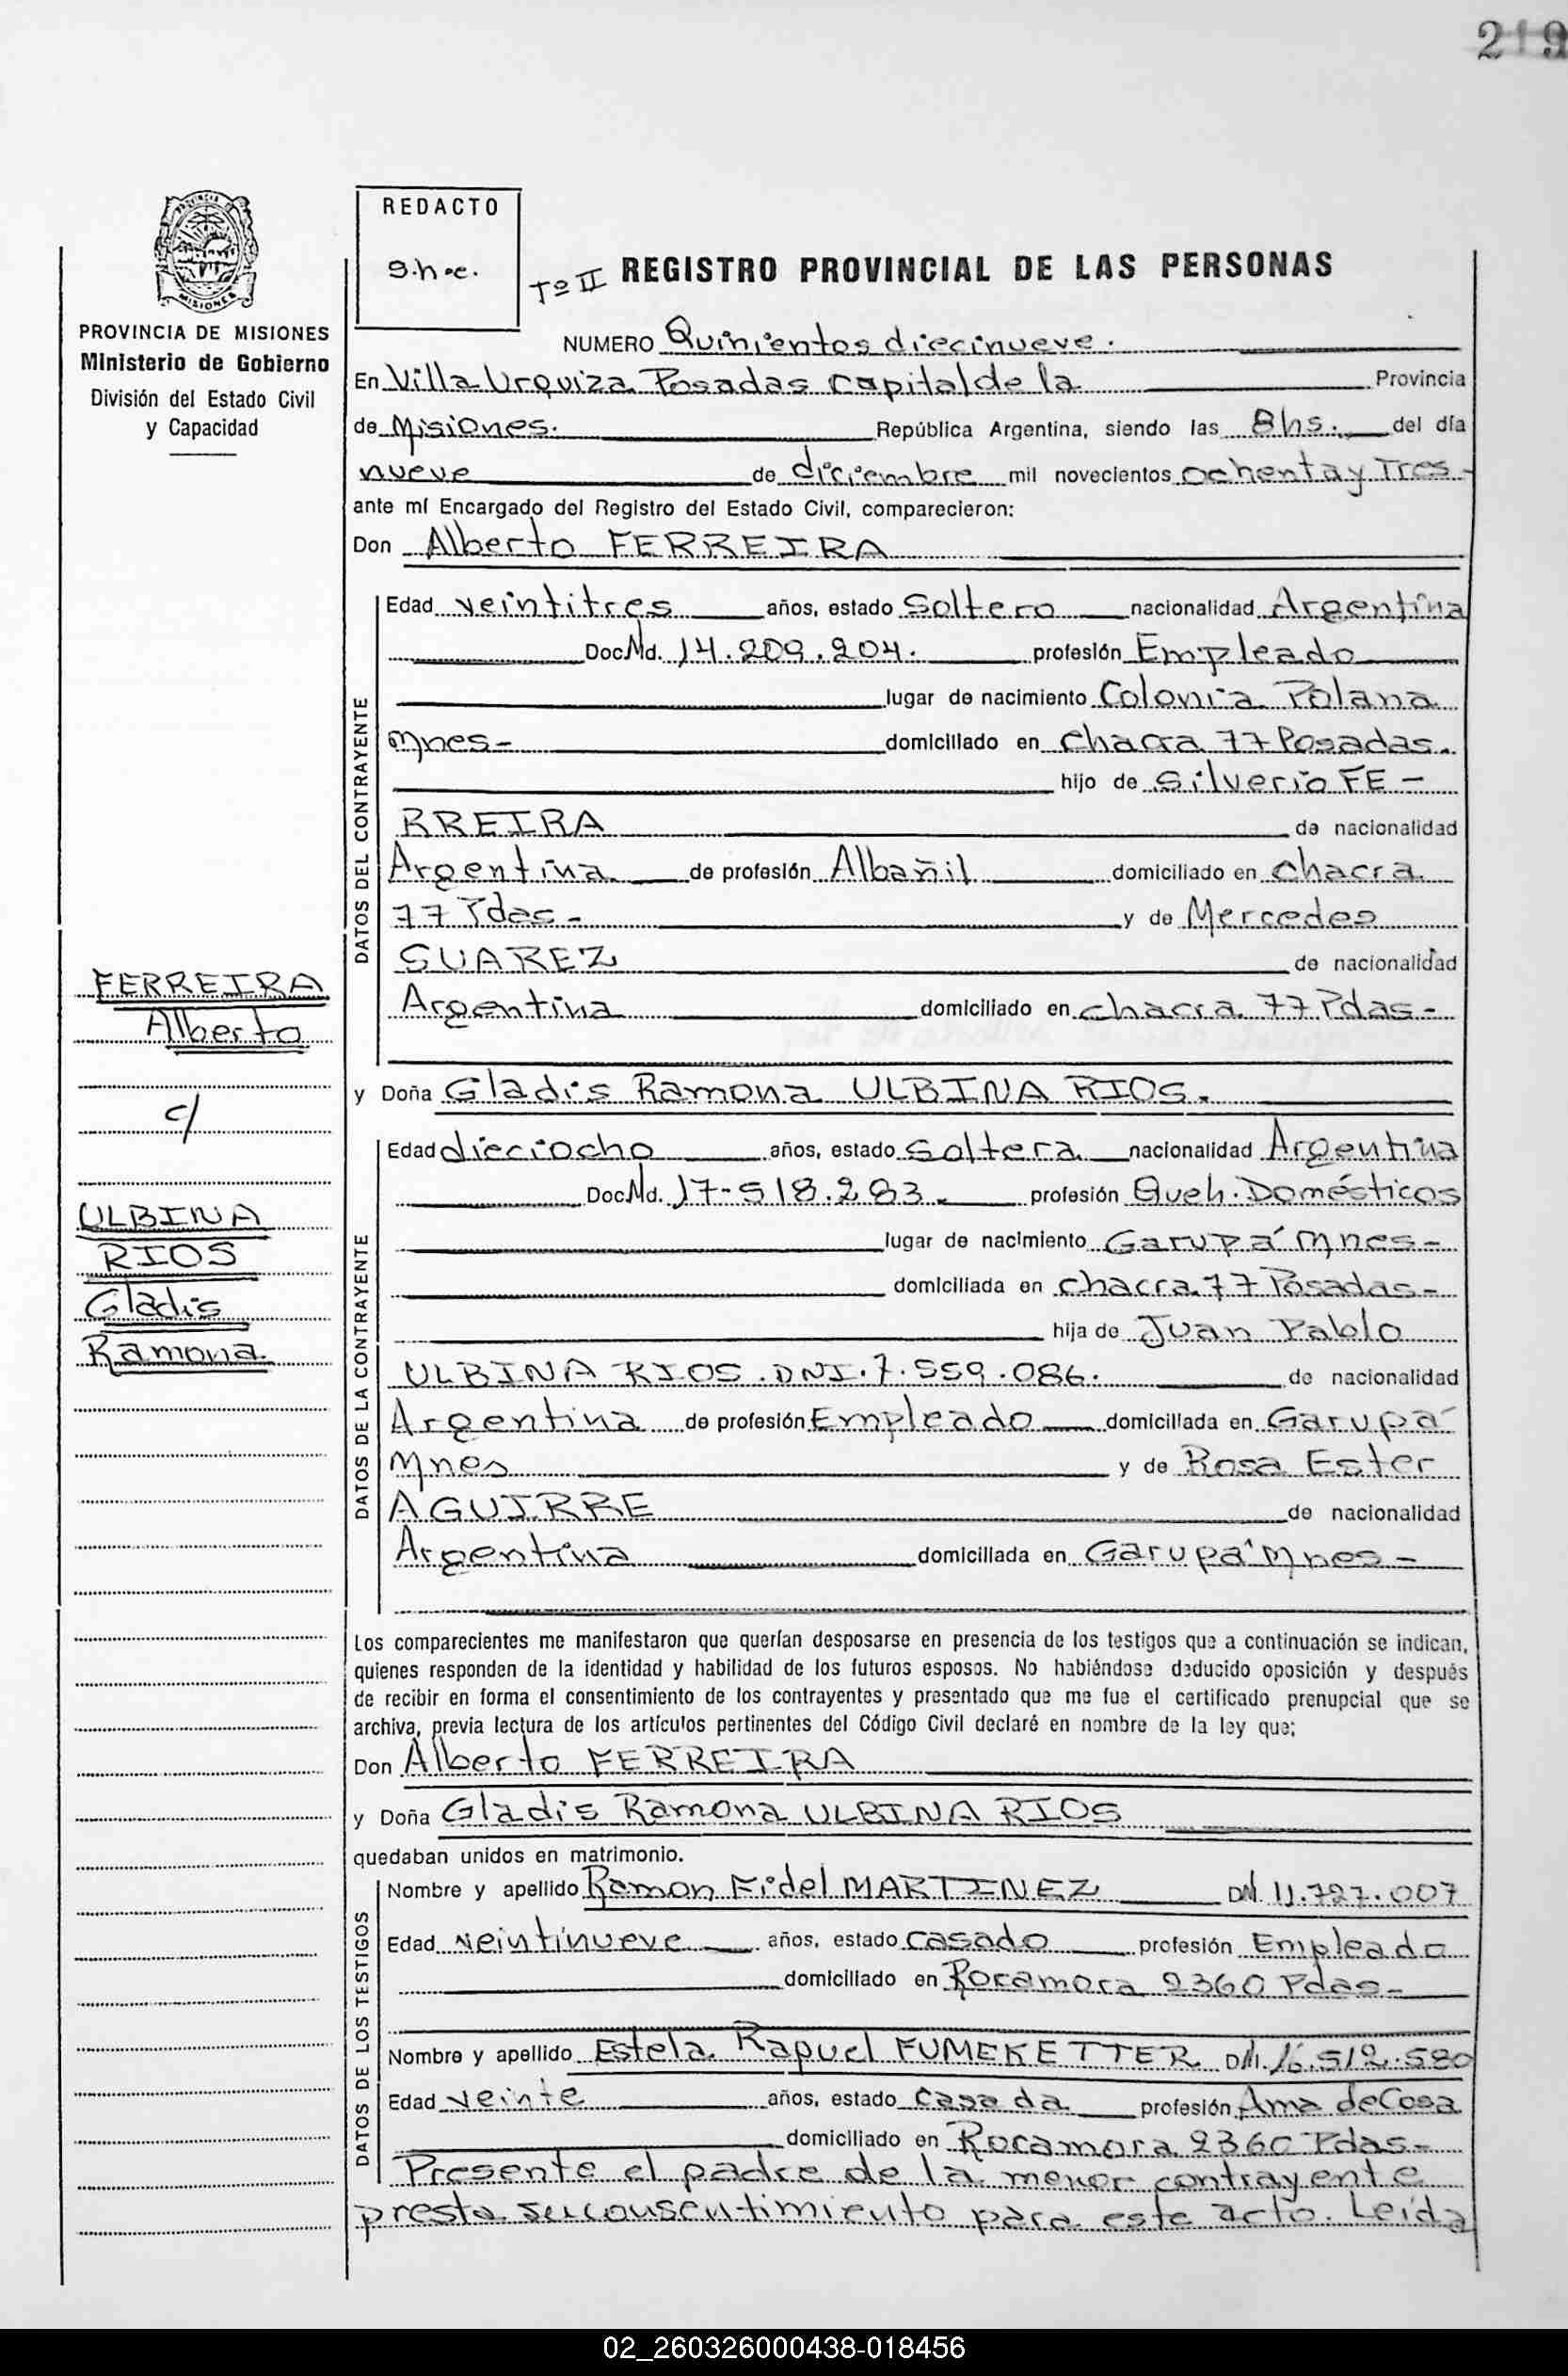 219
REDACTO
S.h.c.
Tº II REGISTRO PROVINCIAL DE LAS PERSONAS
PROVINCIA DE MISIONES
Ministerio de Gobierno
División del Estado Civil
y Capacidad
NUMERO Quinientos diecinueve.
En Villa Urquiza Posadas capital de la Provincia
de Misiones. República Argentina, siendo las 8hs. del día
nueve de diciembre mil novecientos ochenta y Tres-
ante mí Encargado del Registro del Estado Civil, comparecieron:
Don Alberto FERREIRA
DATOS DEL CONTRAYENTE
Edad veintitres años, estado Soltero nacionalidad Argentina
Doc Nd. 14.209.204. profesión Empleado
lugar de nacimiento Colonia Polana
Mnes- domiciliado en chacra 77 Posadas.
hijo de Silverio FE-
RREIRA de nacionalidad
Argentina de profesión Albañil domiciliado en chacra
77 Pdas- y de Mercedes
SUAREZ de nacionalidad
Argentina domiciliado en chacra 77 Pdas-
FERREIRA
Alberto
c/
ULBINA
RIOS
Gladis
Ramona
y Doña Gladis Ramona ULBINA RIOS.
DATOS DE LA CONTRAYENTE
Edad dieciocho años, estado Soltera nacionalidad Argentina
Doc Nd. 17-518.283. profesión Queh. Domésticos
lugar de nacimiento Garupá Mnes-
domiciliada en chacra 77 Posadas-
hija de Juan Pablo
ULBINA RIOS. DNI. 7.559.086. de nacionalidad
Argentina de profesión Empleado domiciliada en Garupá
Mnes y de Rosa Ester
AGUIRRE de nacionalidad
Argentina domiciliada en Garupá Mnes-
Los comparecientes me manifestaron que querían desposarse en presencia de los testigos que a continuación se indican,
quienes responden de la identidad y habilidad de los futuros esposos. No habiéndose deducido oposición y después
de recibir en forma el consentimiento de los contrayentes y presentado que me fue el certificado prenupcial que se
archiva, previa lectura de los artículos pertinentes del Código Civil declaré en nombre de la ley que;
Don Alberto FERREIRA
y Doña Gladis Ramona ULBINA RIOS
quedaban unidos en matrimonio.
DATOS DE LOS TESTIGOS
Nombre y apellido Ramon Fidel MARTINEZ DNI. 11.727.007
Edad veintinueve años, estado casado profesión Empleado
domiciliado en Rocamora 2360 Pdas-
Nombre y apellido Estela Raquel FUMEKETTER DNI. 16.512.580
Edad veinte años, estado casada profesión Ama de Casa
domiciliado en Rocamora 2360 Pdas-
Presente el padre de la menor contrayente
presta su consentimiento para este acto. Leida
02_260326000438-018456